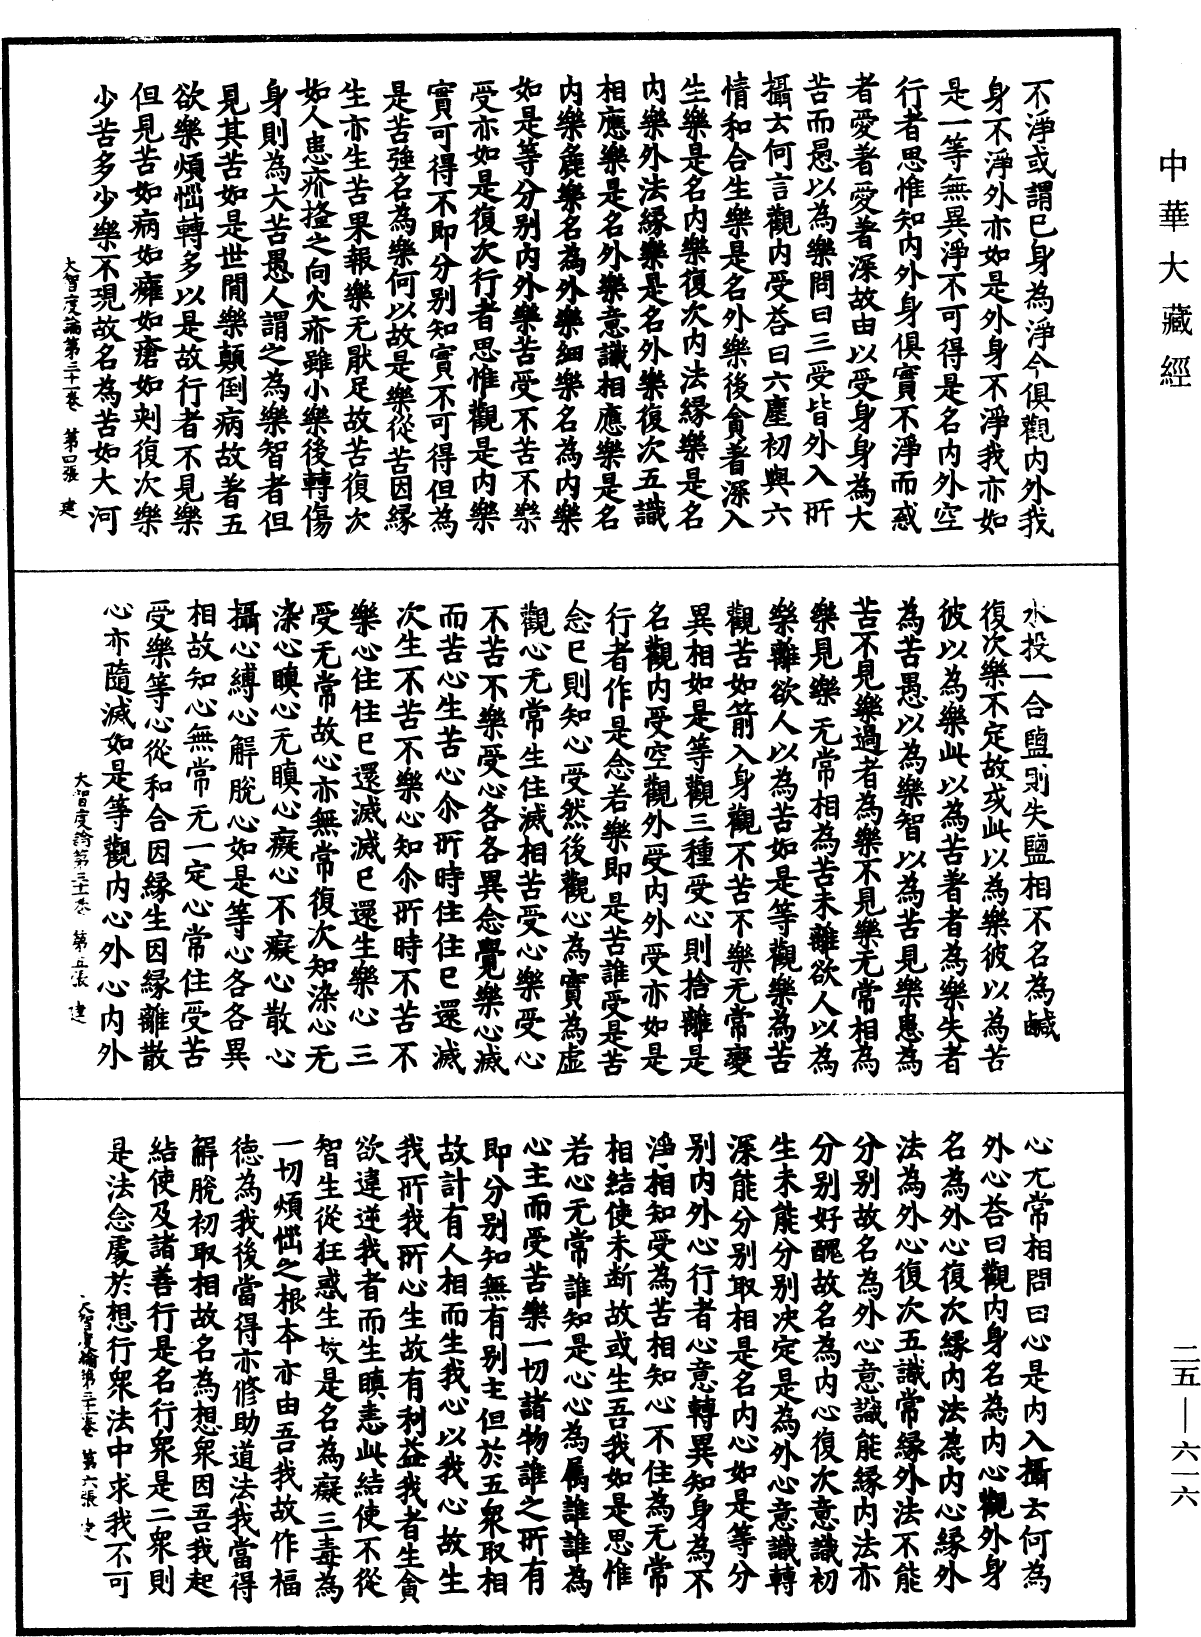 中華大藏經
不淨或謂已身為淨今俱觀內外我
身不淨外亦如是外身不淨我亦如
是一等無異淨不可得是名內外空
行者思惟知內外身俱實不淨而惑
者愛著愛著深故由以受身身為大
苦而愚以為樂問曰三受皆外入所
攝云何言觀內受荅曰六塵初與六
情和合生樂是名外樂後貪著深入
生樂是名內樂復次內法緣樂是名
內樂外法緣樂是名外樂復次五識
相應樂是名外樂意識相應樂是名
內樂麁樂名為外樂細樂名為內樂
如是等分別內外樂苦受不苦不樂
受亦如是復次行者思惟觀是內樂
實可得不即分別知實不可得但為
是苦強名為樂何以故是樂從苦因緣
生亦生苦果報樂无猒足故苦復次
如人患疥搔之向火疥雖小樂後轉傷
身則為大苦愚人謂之為樂智者但
見其苦如是世間樂顛倒病故著五
欲樂煩惱轉多以是故行者不見樂
但見苦如病如癰如瘡如刺復次樂
少苦多少樂不現故名為苦如大河
大智度論第三十一卷 第四張 建
水投一合鹽則失鹽相不名為鹹
復次樂不定故或此以為樂彼以為苦
彼以為樂此以為苦著者為樂失者
為苦愚以為樂智以為苦見樂患為
苦不見樂過者為樂不見樂无常相為
樂見樂无常相為苦未離欲人以為
樂離欲人以為苦如是等觀樂為苦
觀苦如箭入身觀不苦不樂无常變
異相如是等觀三種受心則捨離是
名觀內受空觀外受內外受亦如是
行者作是念若樂即是苦誰受是苦
念已則知心受然後觀心為實為虛
觀心无常生住滅相苦受心樂受心
不苦不樂受心各各異念覺樂心滅
而苦心生苦心尒所時住住已還滅
次生不苦不樂心知尒所時不苦不
樂心住住已還滅滅已還生樂心三
受无常故心亦無常復次知染心无
染心瞋心无瞋心癡心不癡心散心
攝心縛心解脫心如是等心各各異
相故知心無常无一定心常住受苦
受樂等心從和合因緣生因緣離散
心亦隨滅如是等觀內心外心內外
大智度論第三十一卷 第五張 建
心无常相問曰心是內入攝云何為
外心荅曰觀內身名為內心觀外身
名為外心復次緣內法為內心緣外
法為外心復次五識常緣外法不能
分別故名為外心意識能緣內法亦
分別好醜故名為內心復次意識初
生未能分別決定是為外心意識轉
深能分別取相是名內心如是等分
別內外心行者心意轉異知身為不
淨相知受為苦相知心不住為无常
相結使未斷故或生吾我如是思惟
若心无常誰知是心心為屬誰誰為
心主而受苦樂一切諸物誰之所有
即分別知無有別主但於五眾取相
故計有人相而生我心以我心故生
我所我所心生故有利益我者生貪
欲違逆我者而生瞋恚此結使不從
智生從狂惑生故是名為癡三毒為
一切煩惱之根本亦由吾我故作福
德為我後當得亦修助道法我當得
解脫初取相故名為想眾因吾我起
結使及諸善行是名行眾是二眾則
是法念處於想行眾法中求我不可
大智度論第三十一卷 第六張 建
二五—六一六